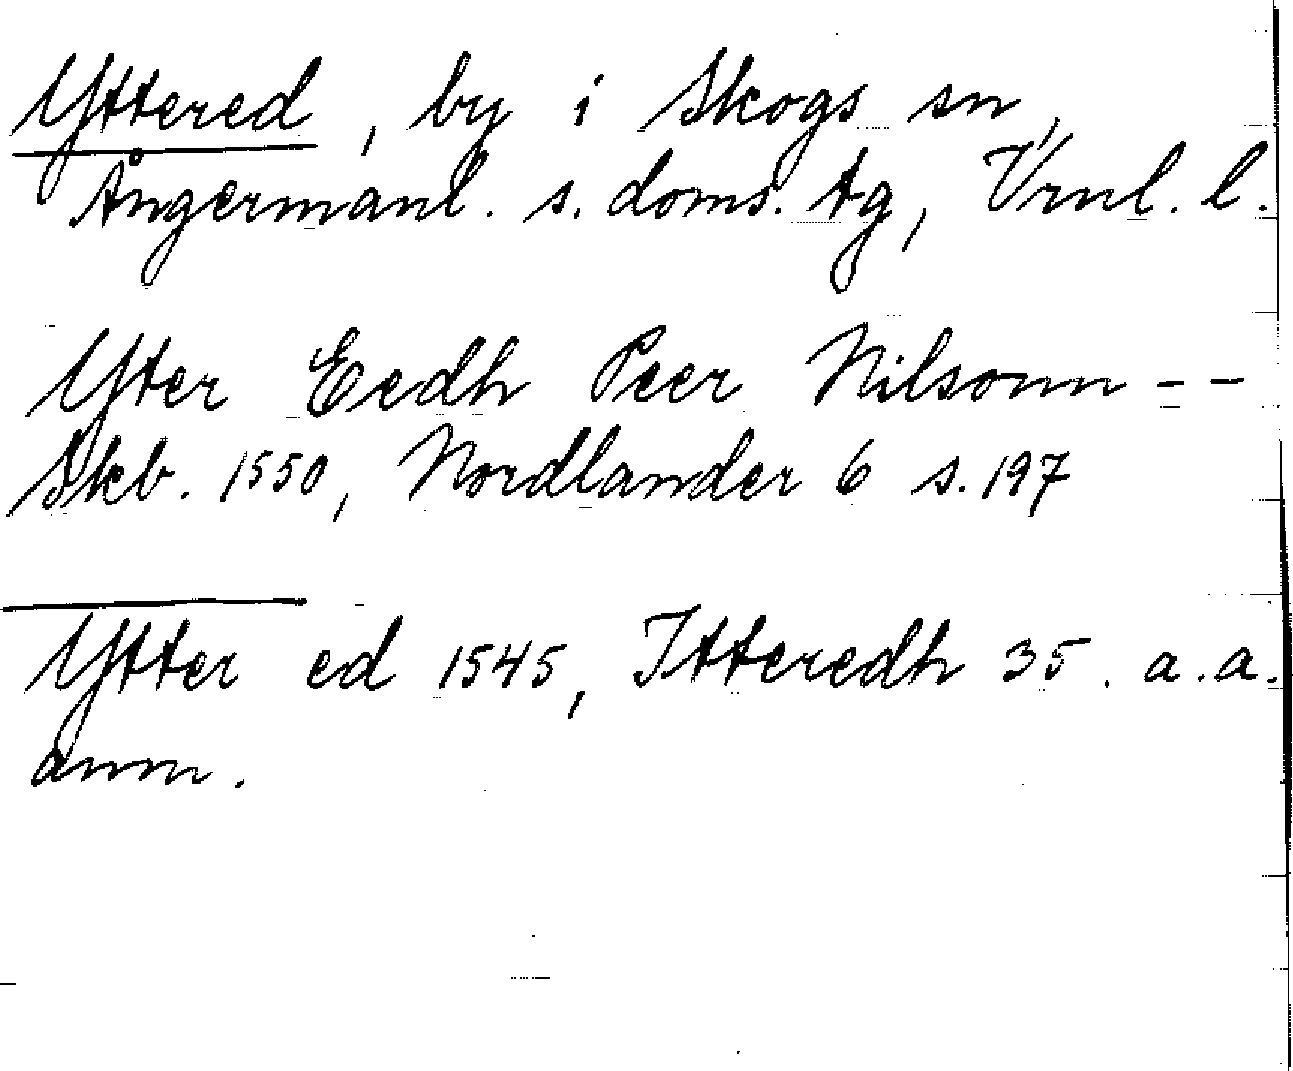 Yttered, by i Skogs sn,
Ångermanl. s. doms. tg, Vrnl. l.
Yter Eedh Peer Nilsonn --
Skb. 1550, Nordlander 6 s. 197
Ytter ed 1545, Itteredh 35. a.a.
anm.